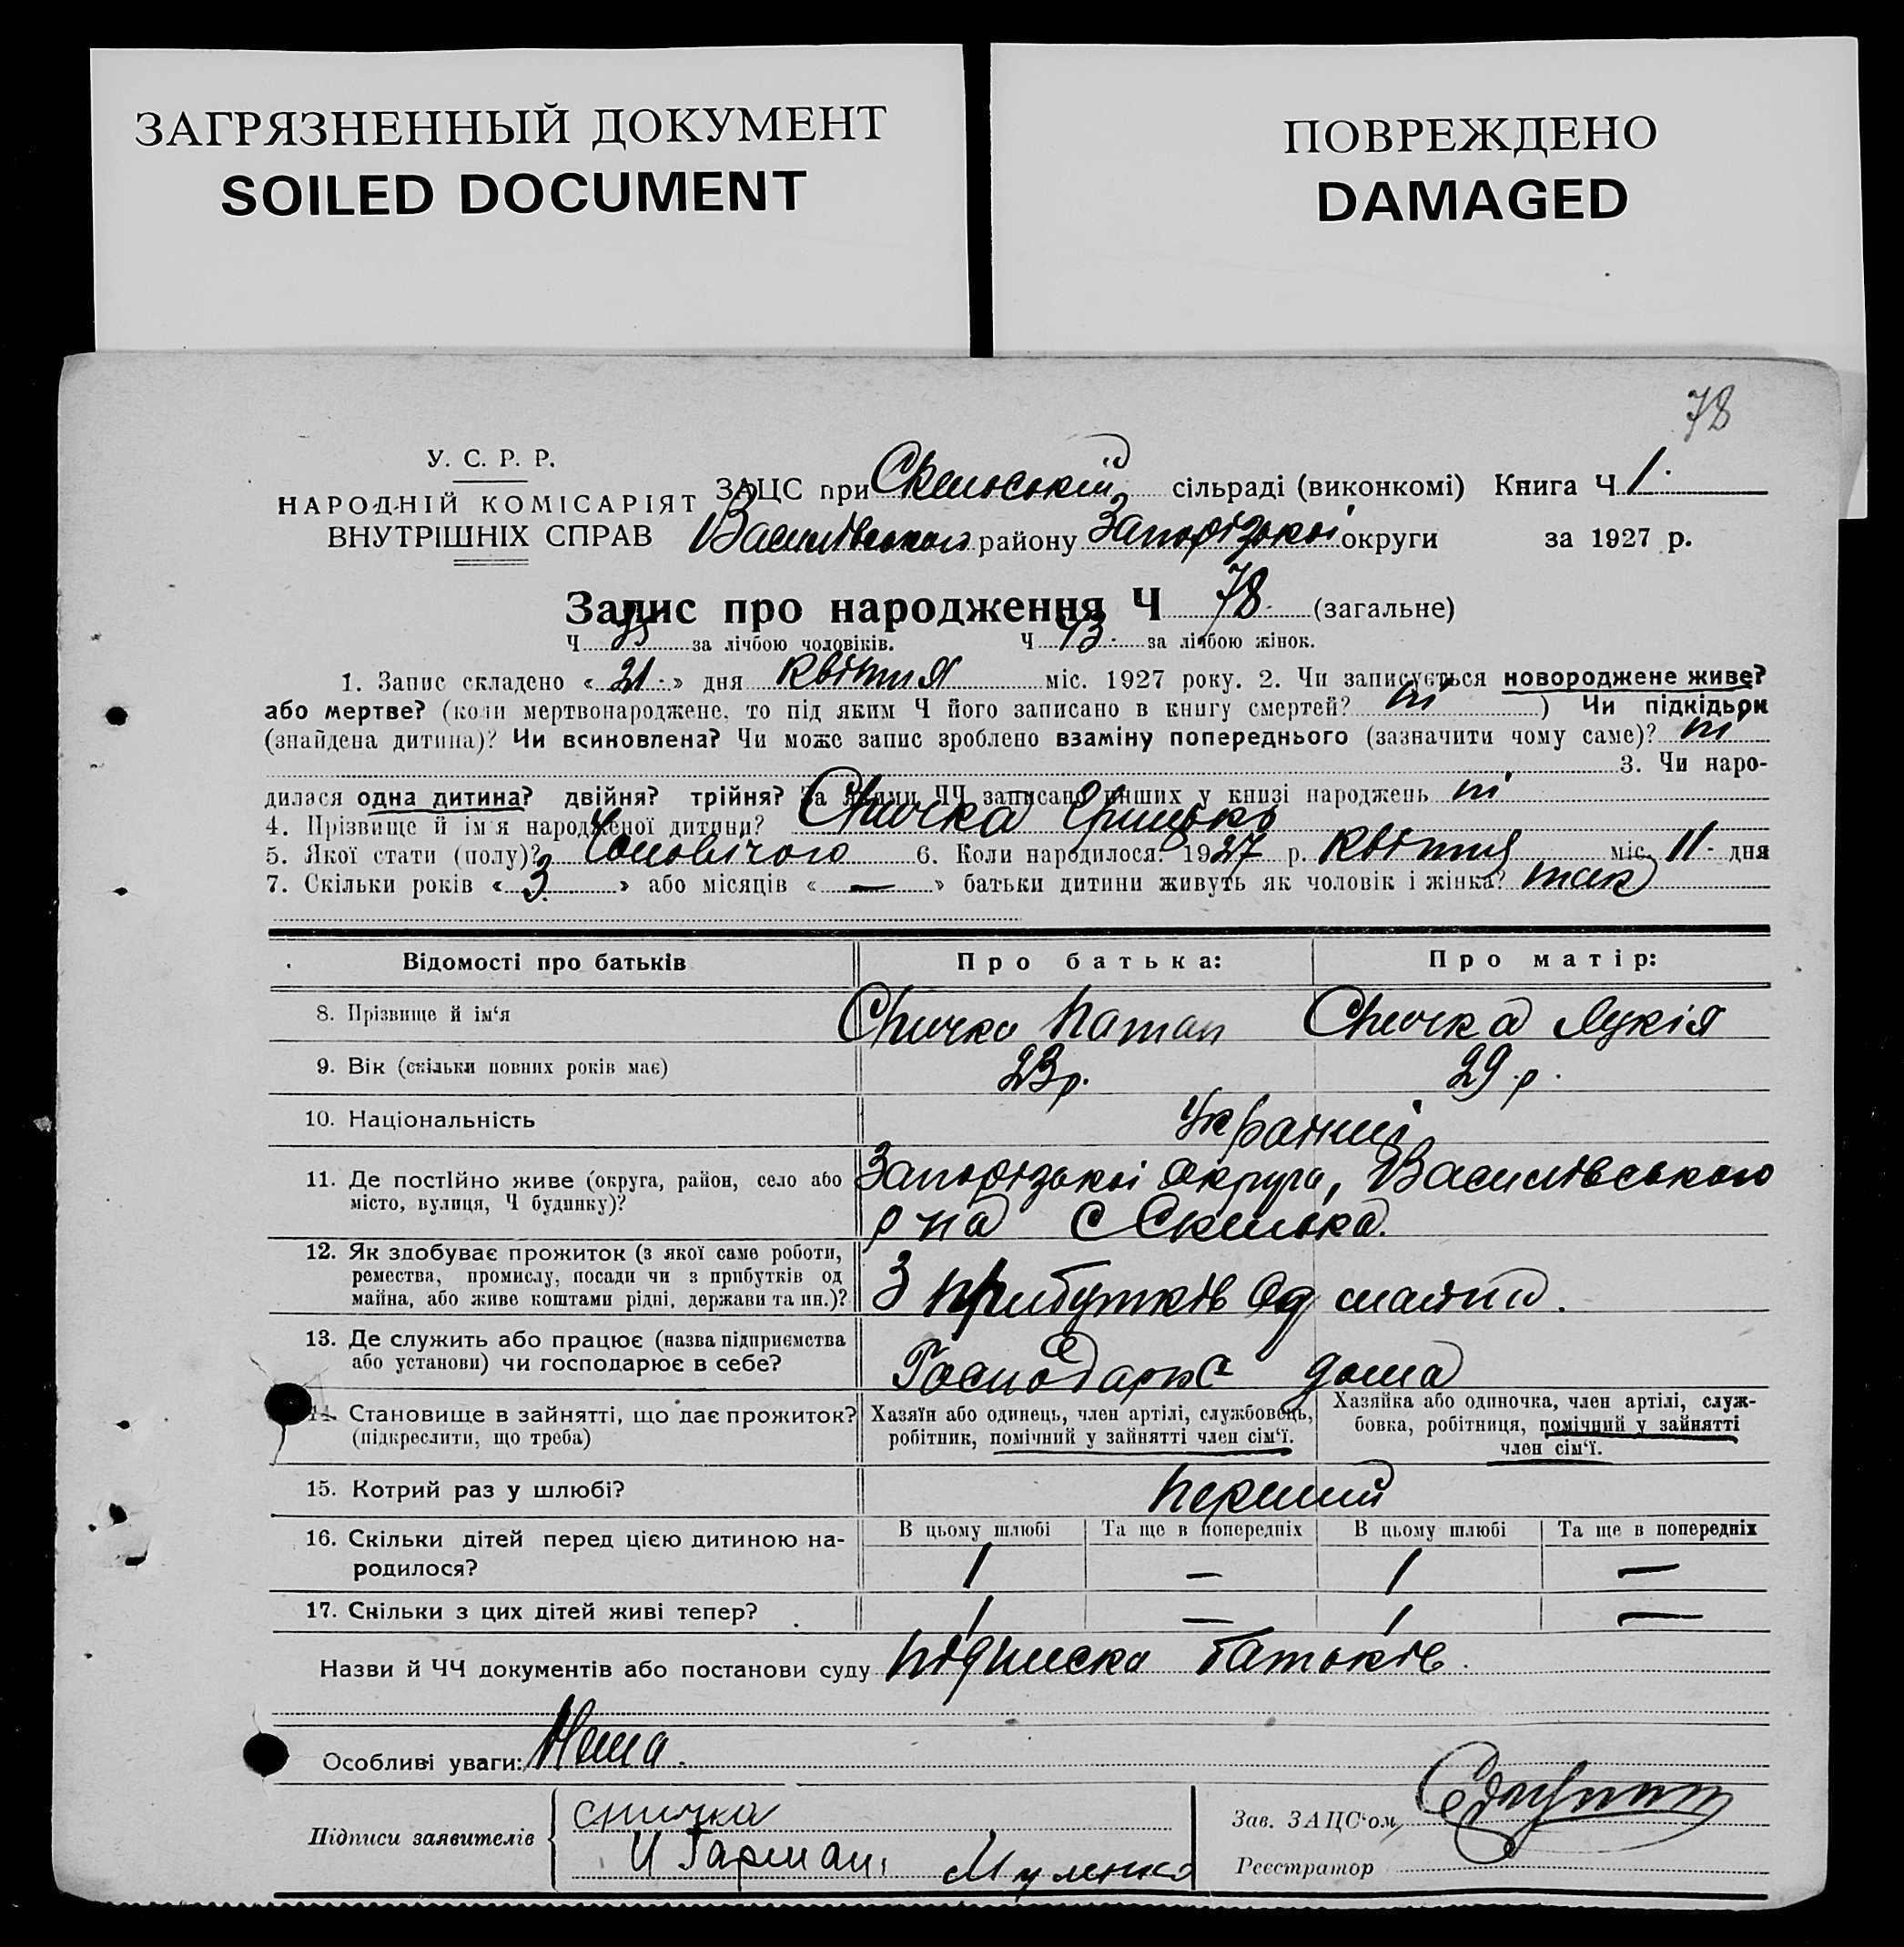 ЗАГРЯЗНЕННЫЙ ДОКУМЕНТ
SOILED DOCUMENT
ПОВРЕЖДЕНО
DAMAGED
78
У. С. Р. Р.
НАРОДНІЙ КОМІСАРІЯТ
ВНУТРІШНІХ СПРАВ
ЗАЦС при Скельській сільраді (виконкомі) Книга Ч 1.
Василівського району Запорізькоі округи за 1927 р.
Запис про народження Ч 78. (загальне)
Ч 35 за лічбою чоловіків. Ч 43. за лічбою жінок.
1. Запис складено «21.» дня квітня міс. 1927 року. 2. Чи записується новороджене живе?
або мертве? (коли мертвонароджене, то під яким Ч його записано в книгу смертей? ні) Чи підкідьок
(знайдена дитина)? Чи всиновлена? Чи може запис зроблено взаміну попереднього (зазначити чому саме)? ні
3. Чи наро-
дилася одна дитина? двійня? трійня? За якими ЧЧ записано инших у книзі народжень ні
4. Прізвище й ім'я народженої дитини? Спичка Грицько
5. Якої стати (полу)? Чоловічого 6. Коли народилося: 1927 р. квітня міс. 11. дня
7. Скільки років «3.» або місяців «—» батьки дитини живуть як чоловік і жінка? так
Відомості про батьків Про батька: Про матір:
8. Прізвище й ім'я Спичка Потап Спичка Лукія
9. Вік (скільки повних років має) 23 р. 29 р.
10. Національність Украінці
11. Де постійно живе (округа, район, село або Запорізькоі округи, Василівського
місто, вулиця, Ч будинку)? р на С Скелька.
12. Як здобуває прожиток (з якої саме роботи,
ремества, промислу, посади чи з прибутків од
майна, або живе коштами рідні, держави та ин.)? З прибутків од
13. Де служить або працює (назва підприємства
або установи) чи господарює в себе? Господарює дома
14. Становище в зайнятті, що дає прожиток? Хазяїн або одинець, член артілі, службовець, Хазяйка або одиночка, член артілі, служ-
(підкреслити, що треба) робітник, помічний у зайнятті член сім'ї. бовка, робітниця, помічний у зайнятті
член сім'ї.
15. Котрий раз у шлюбі? Перший
16. Скільки дітей перед цією дитиною на- В цьому шлюбі Та ще в попередніх В цьому шлюбі Та ще в попередніх
родилося? 1 — 1 —
17. Скільки з цих дітей живі тепер? 1 — 1 —
Назви й ЧЧ документів або постанови суду підписка батьків.
Особливі уваги: Нема.
Підписи заявителів спичка
Зав. ЗАЦС'ом
Реєстратор